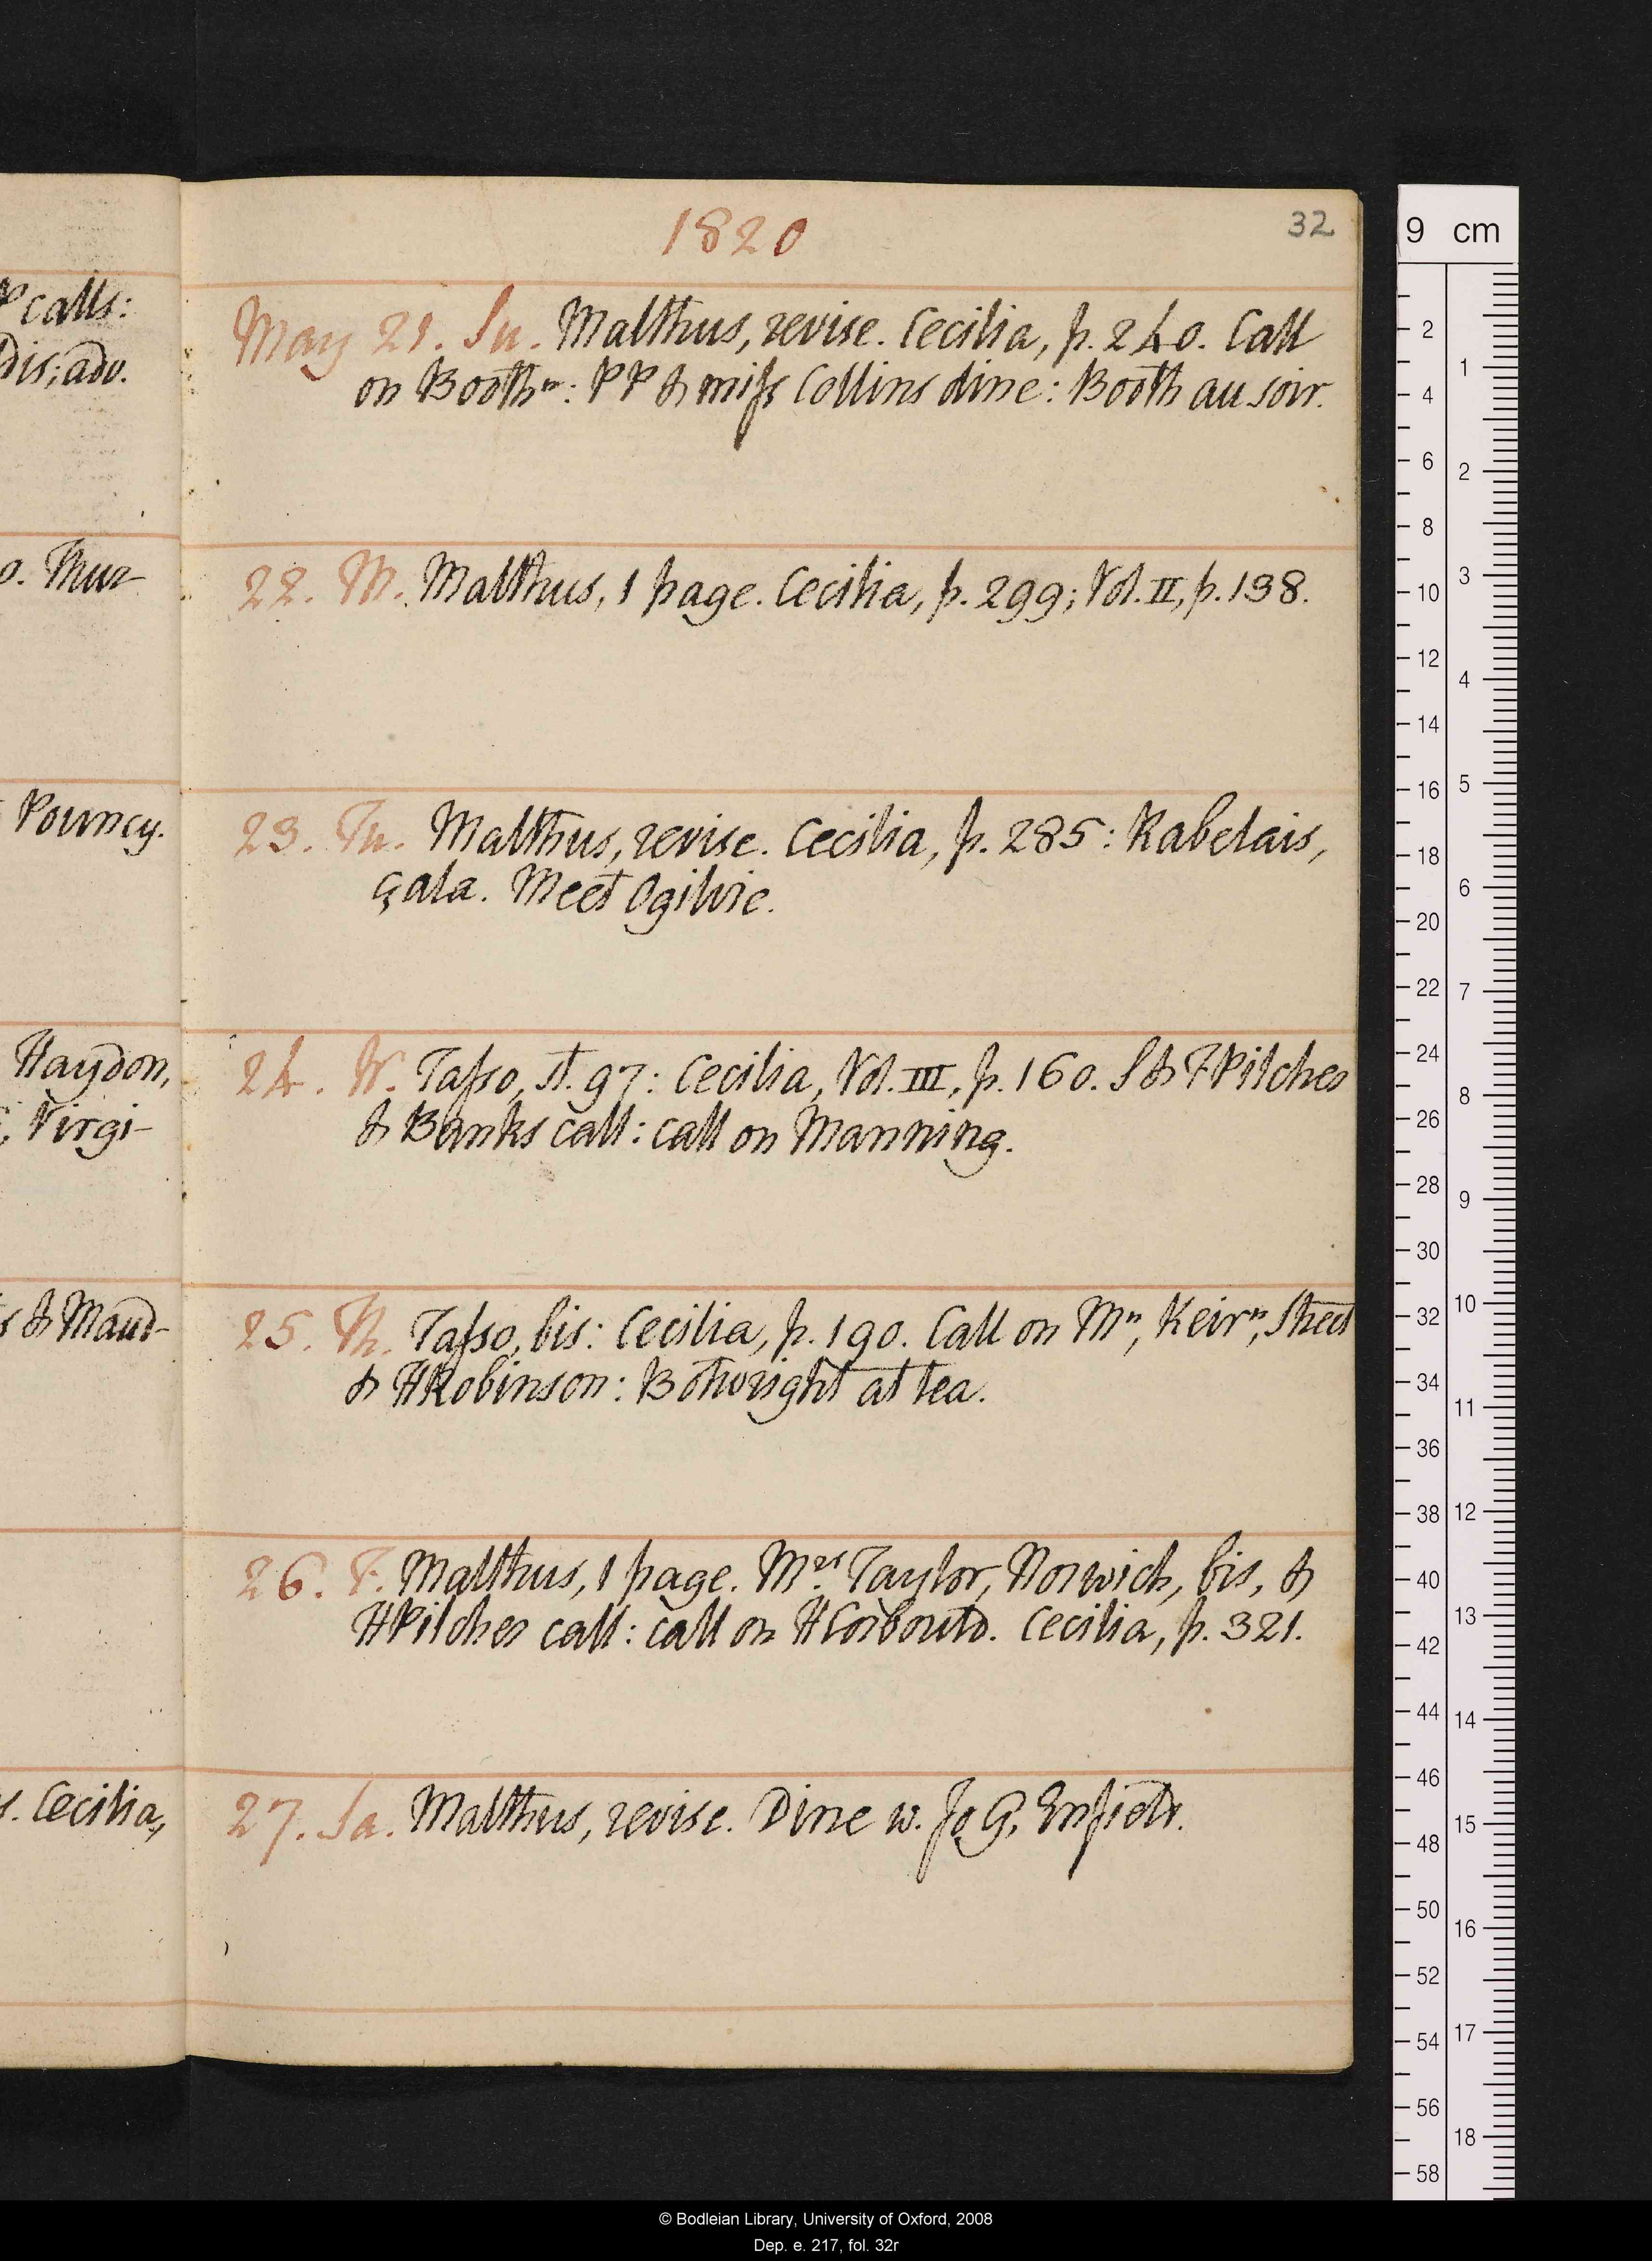 1820
32
P calls:
dis; adv.
May 21. Su. Malthus, revise. Cecilia, p. 240. Call
on Boothⁿ: PP & miss Collins dine: Booth au soir.
o. Mur-
22. M. Malthus, 1 page. Cecilia, p. 299; Vol. II, p. 138.
Pouncy.
23. Tu. Malthus, revise. Cecilia, p. 285: Rabelais,
çala. Meet Ogilvie.
Haydon,
, Virgi-
24. W. Tasso, st. 97: Cecilia, Vol. III, p. 160. S & F Pilcher
& Banks call: call on Manning.
s & Maud-
25. Th. Tasso, bis: Cecilia, p. 190. Call on Mⁿ, Keirⁿ, Street
& HRobinson: Botwright at tea.
26. F. Malthus, 1 page. Mrs Taylor, Norwich, bis, &
HPilcher call: call on HCorbould. Cecilia, p. 321.
s. Cecilia,
27. Sa. Malthus, revise. Dine w. Jo G, Enfield.
9 cm
2
4
6
8
10
12
14
16
18
20
22
24
26
28
30
32
34
36
38
40
42
44
46
48
50
52
54
56
58
1
2
3
4
5
6
7
8
9
10
11
12
13
14
15
16
17
18
© Bodleian Library, University of Oxford, 2008
Dep. e. 217, fol. 32r